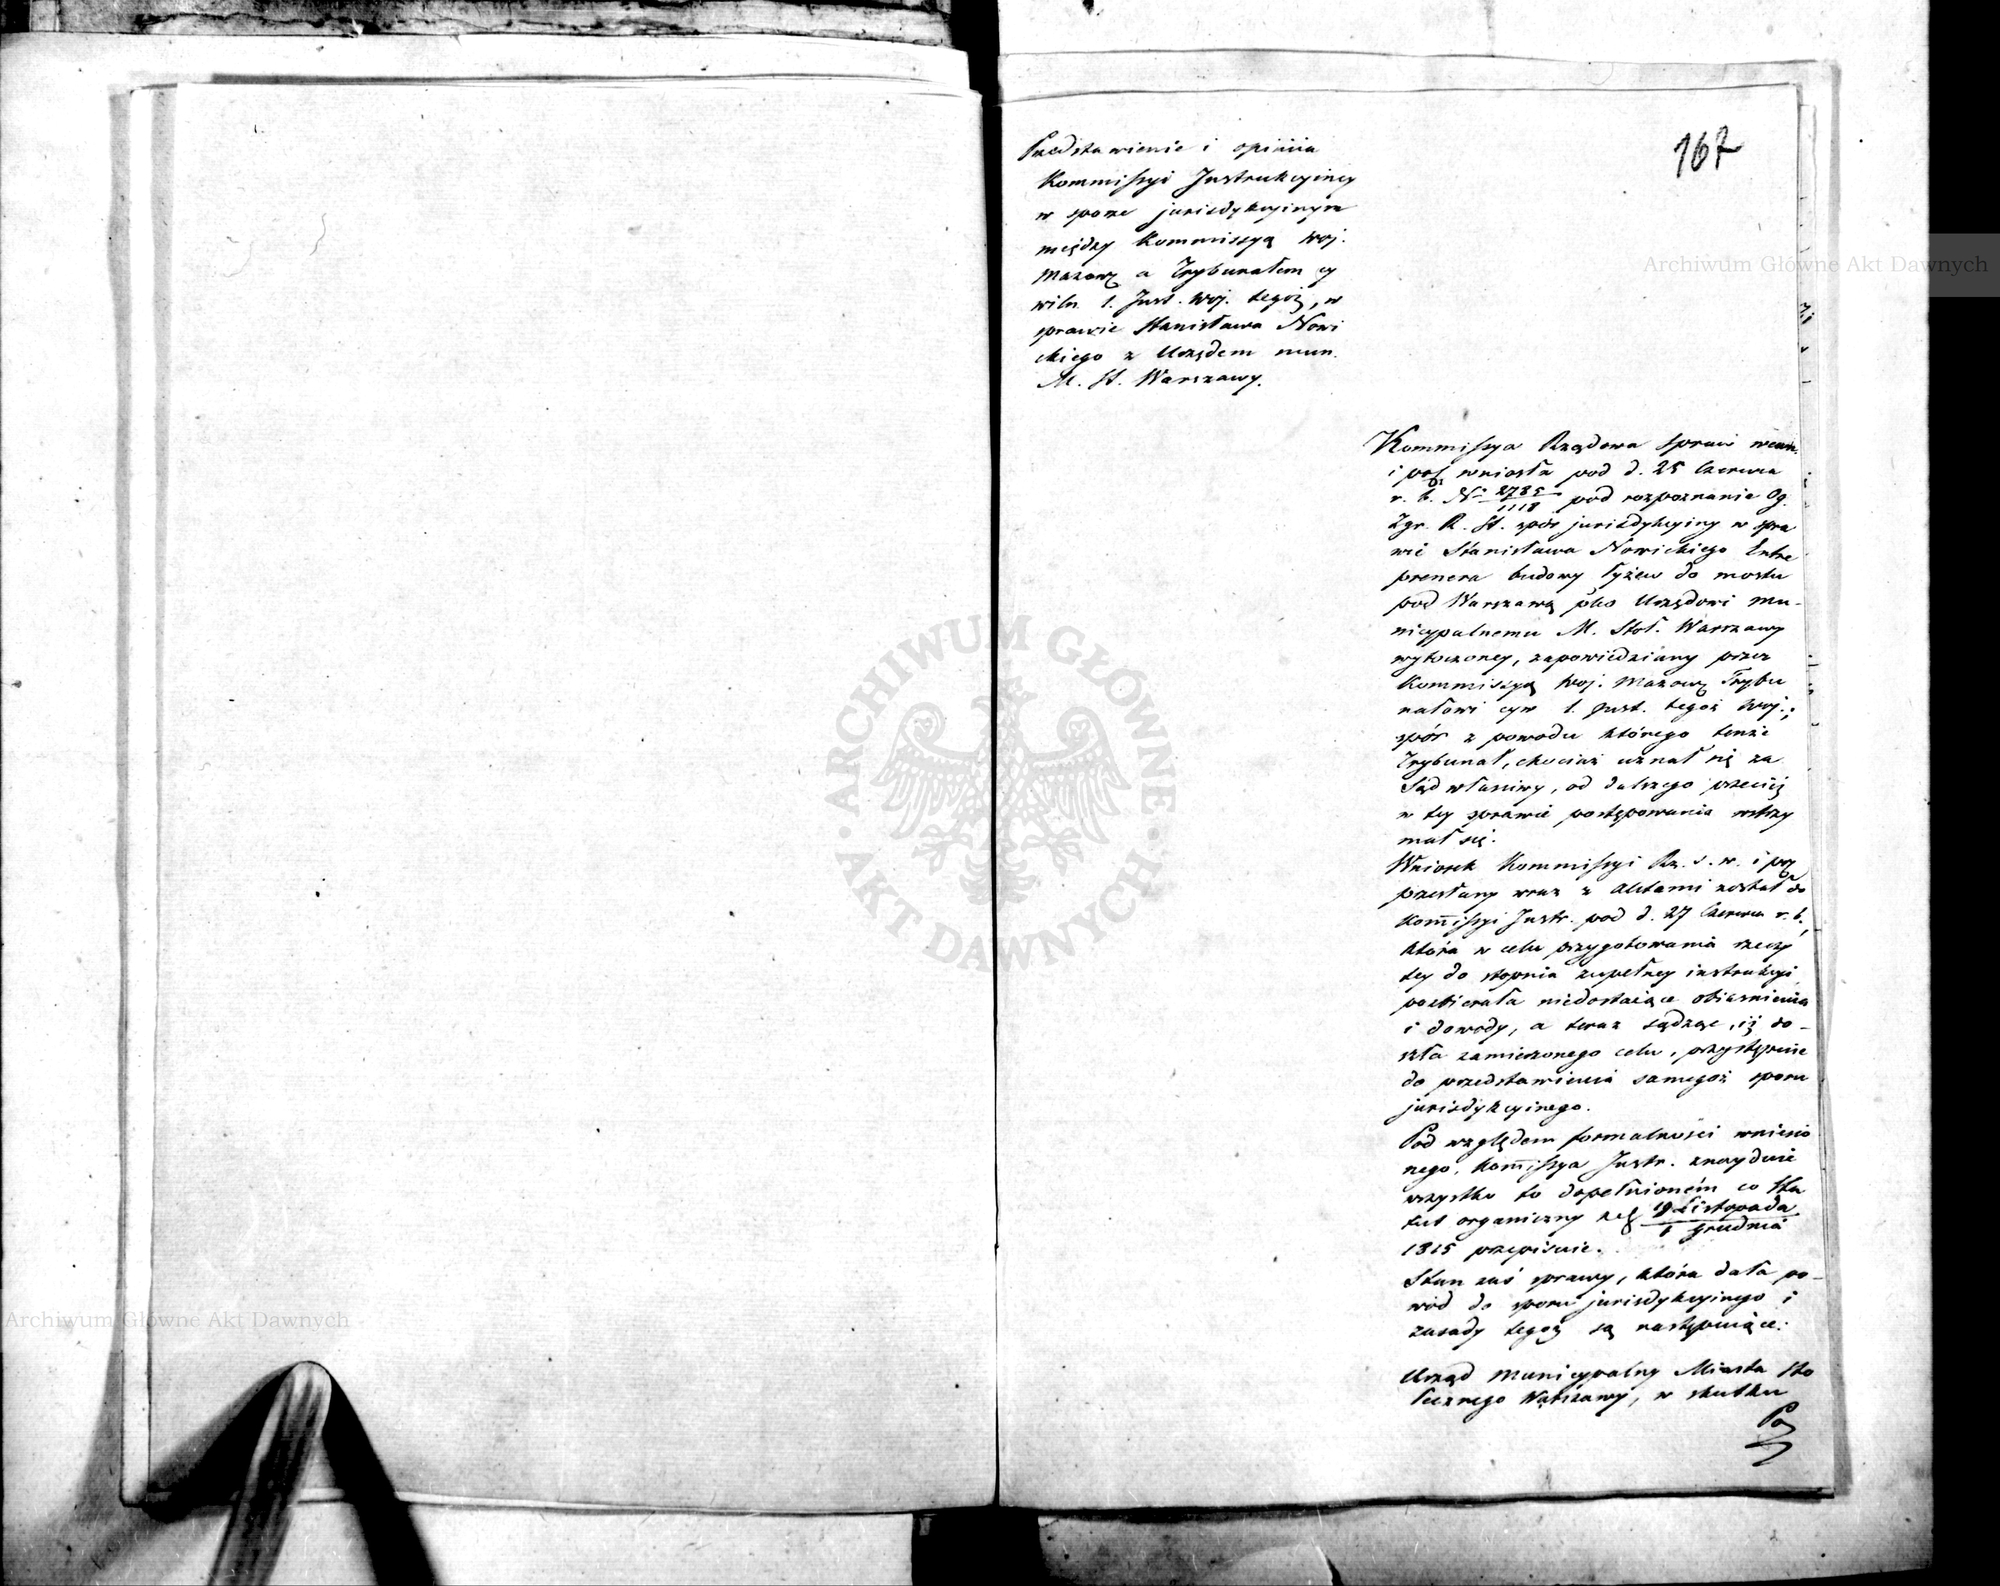 167
Przedstawienie i opiniia
Kommissyi Instrukcyiney
w sporze jurisdykcyinym
między Kommissyą Woj.
Mazow. a Trybunałem cy
wiln. 1. Inst. Woj. tegoż, w
sprawie Stanisława Nowi
ckiego z Urzędem mun.
M. St. Warszawy.
Kommissya Rządowa spraw wewn.
i pol. wniosła pod d. 25 Czerwca
r. b. N 2785/1118 pod rozpoznanie Og.
Zgr. R. St. spór jurisdykcyiny w spra
wie Stanisława Nowickiego Entre
prenera budowy łyżew do mostu
pod Warszawą pko Urzędowi Mu-
nicypalnemu M. Stoł. Warszawy
wytoczoney, zapowiedziany przez
Kommissyą Woj. Mazow. Trybu
nałowi cyw 1. Inst. tegoż Woj.;
spór z powodu którego tenże
Trybunał, chociaż uznał się za
Sąd właściwy, od dalszego przecież
w tey sprawie postępowania wstrzy
mał się.
Wniosek Kommissyi Rz. s. w. i pol.
przesłany wraz z Aktami został do
Kommissyi Instr. pod d. 27 Czerwca r. b.,
która w celu przygotowania rzeczy
tey do stopnia zupełney instrukcyi
pozbierała niedostaiące obiasnienia
i dowody, a teraz sądząc, iż do-
szła zamierzonego celu, przystępuie
do przedstawienia samegoż sporu
jurisdykcyinego.
Pod względem formalności wniesio
nego, Kommissya Instr. znayduie
wszystko to dopełnioném co Sta
tut organiczny z d. 19 Listopada/1 Grudnia
1815 przepisuie.
Stan zaś sprawy, która dała po-
wód do sporu jurisdykcyinego i
zasady tegoż są następuiące:
Urząd Municypalny Miasta Sto
łecznego Warszawy, w skutku
Archiwum Główne Akt Dawnych
Archiwum Główne Akt Dawnych
ARCHIWUM GŁÓWNE AKT DAWNYCH